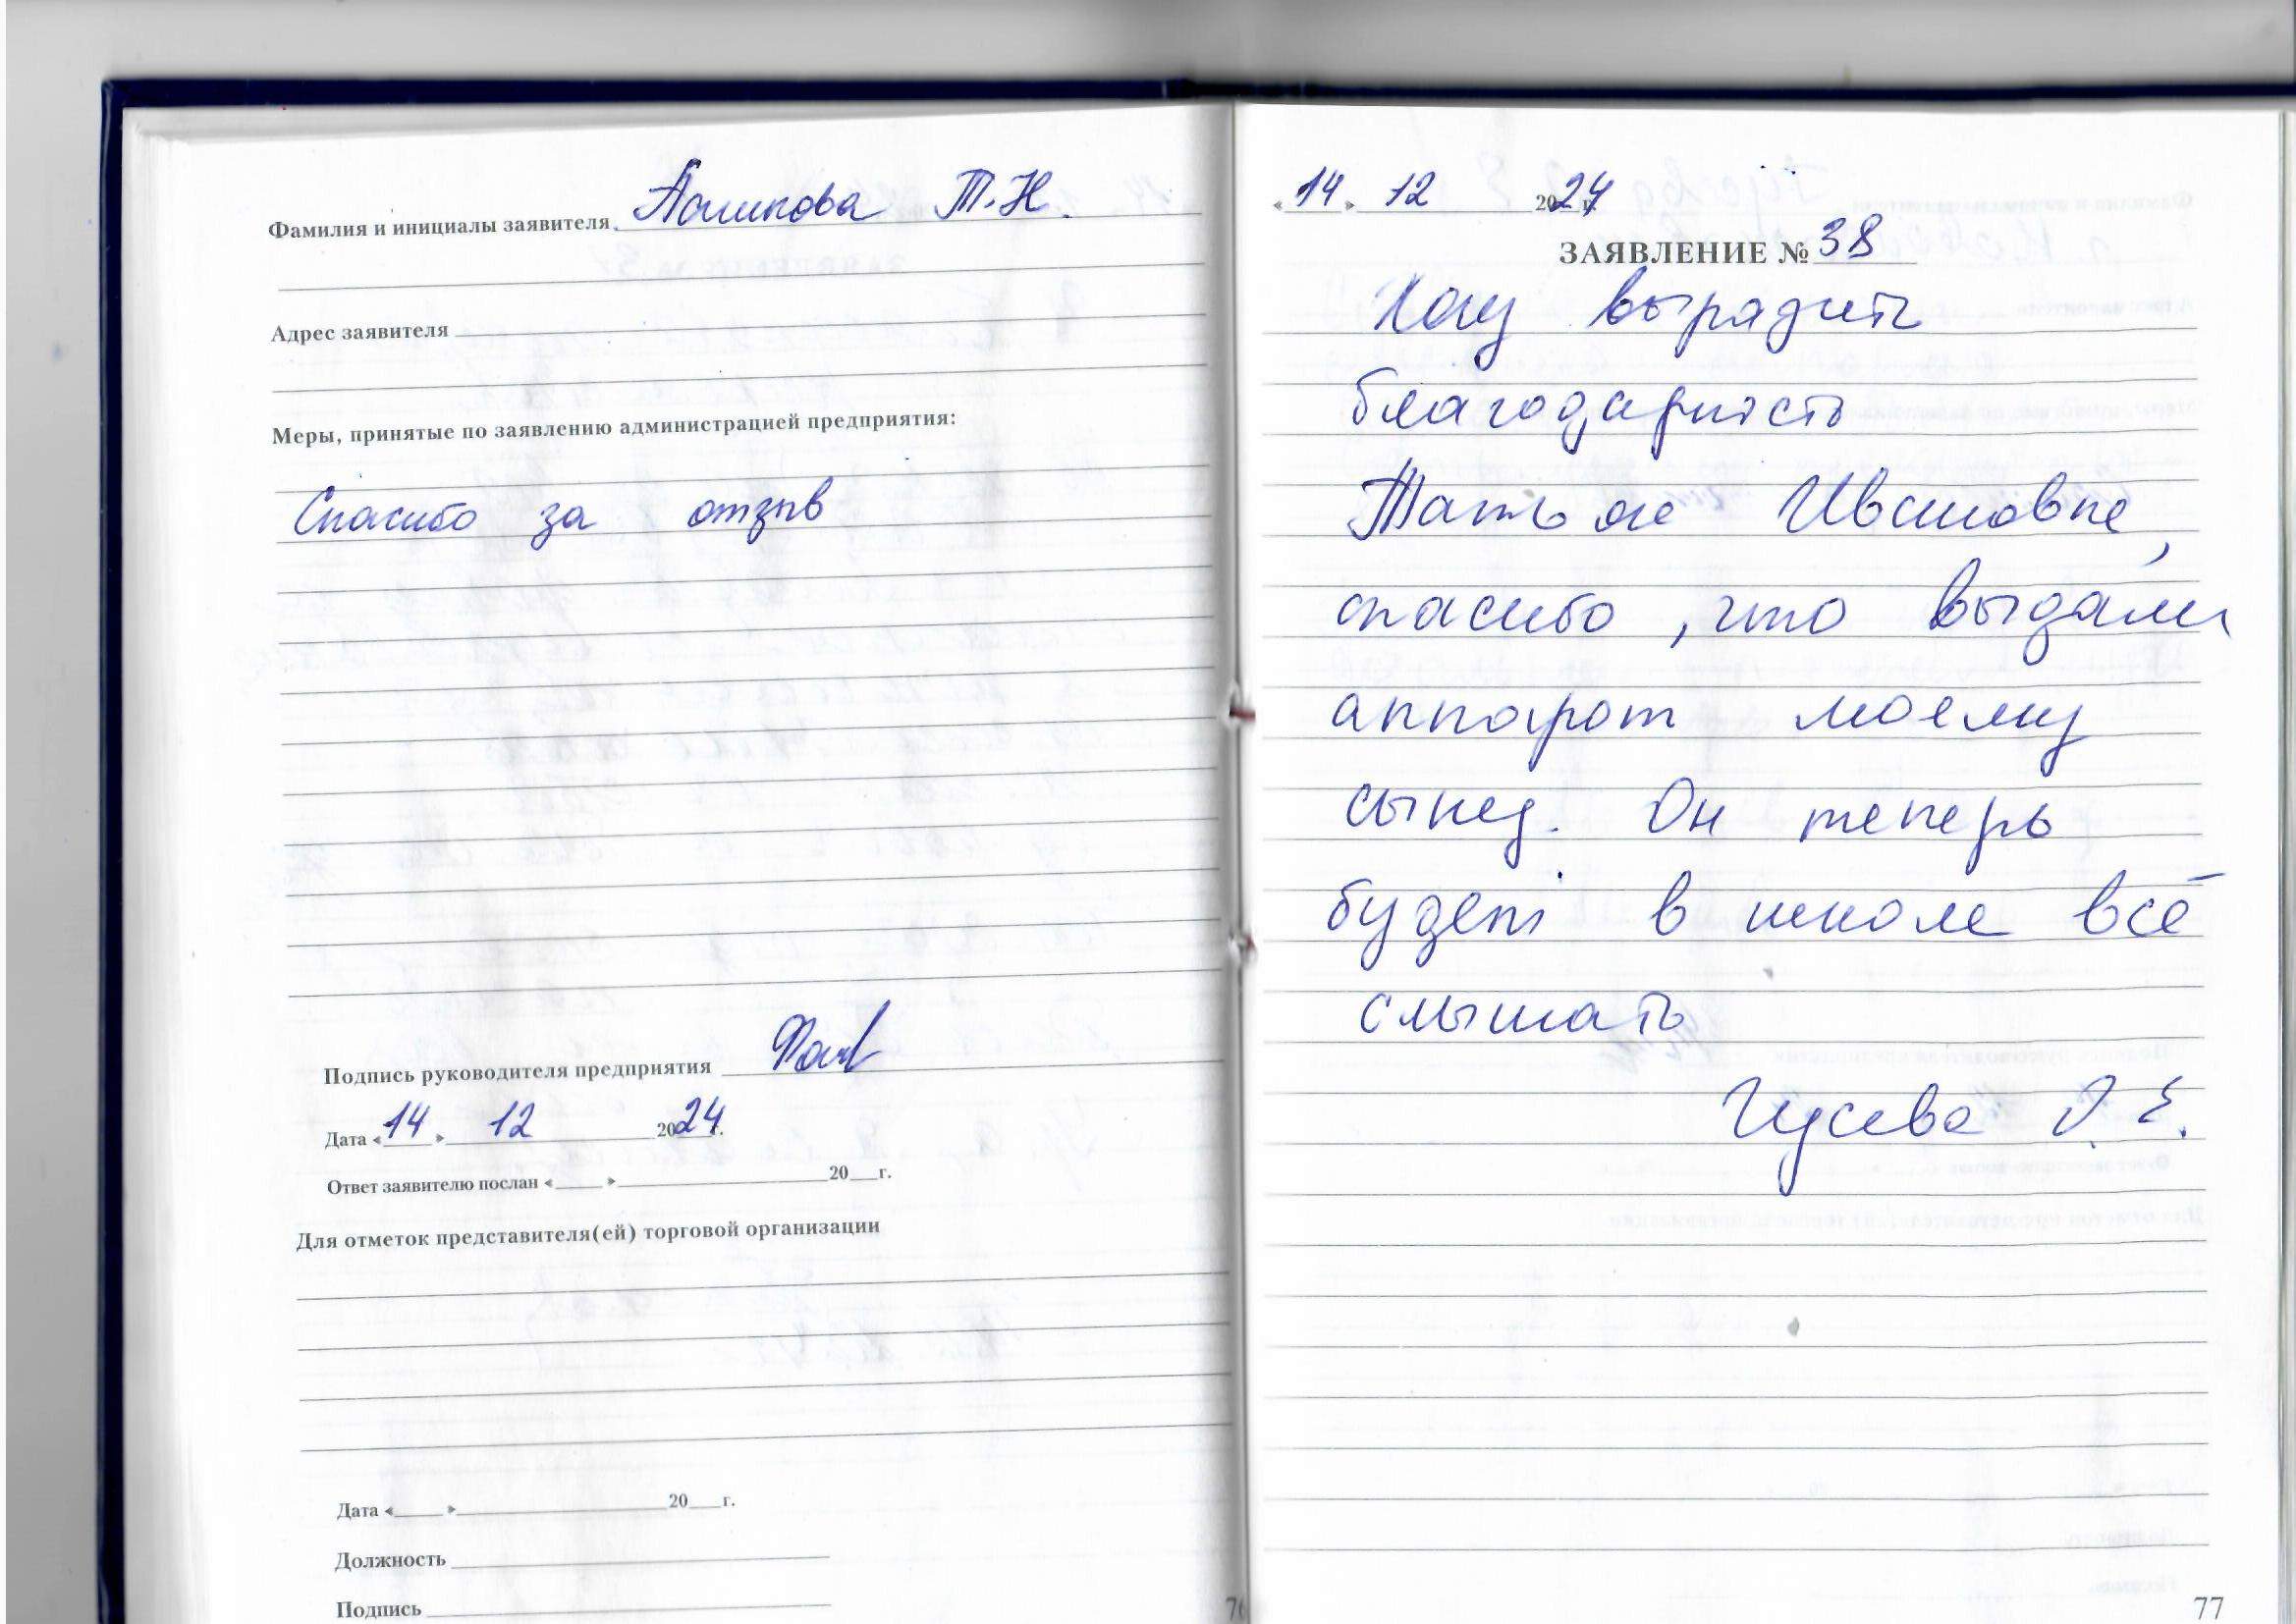 Фамилия и инициалы заявителя Т.Н.
Адрес заявителя
Меры, принятые по заявлению администрацией предприятия:
Спасибо за отзыв
Подпись руководителя предприятия
Дата «14» 12 2024г.
Ответ заявителю послан «___»___20__г.
Для отметок представителя(ей) торговой организации
Дата «___»___20__г.
Должность
Подпись
76
«14» 12 2024г.
ЗАЯВЛЕНИЕ № 38
Хочу выразить
благодарность
Татьяне Ивановне,
спасибо, что выдали
аппарат моему
сыну. Он теперь
будет в школе всё
слышать
Гусева О.Е.
77